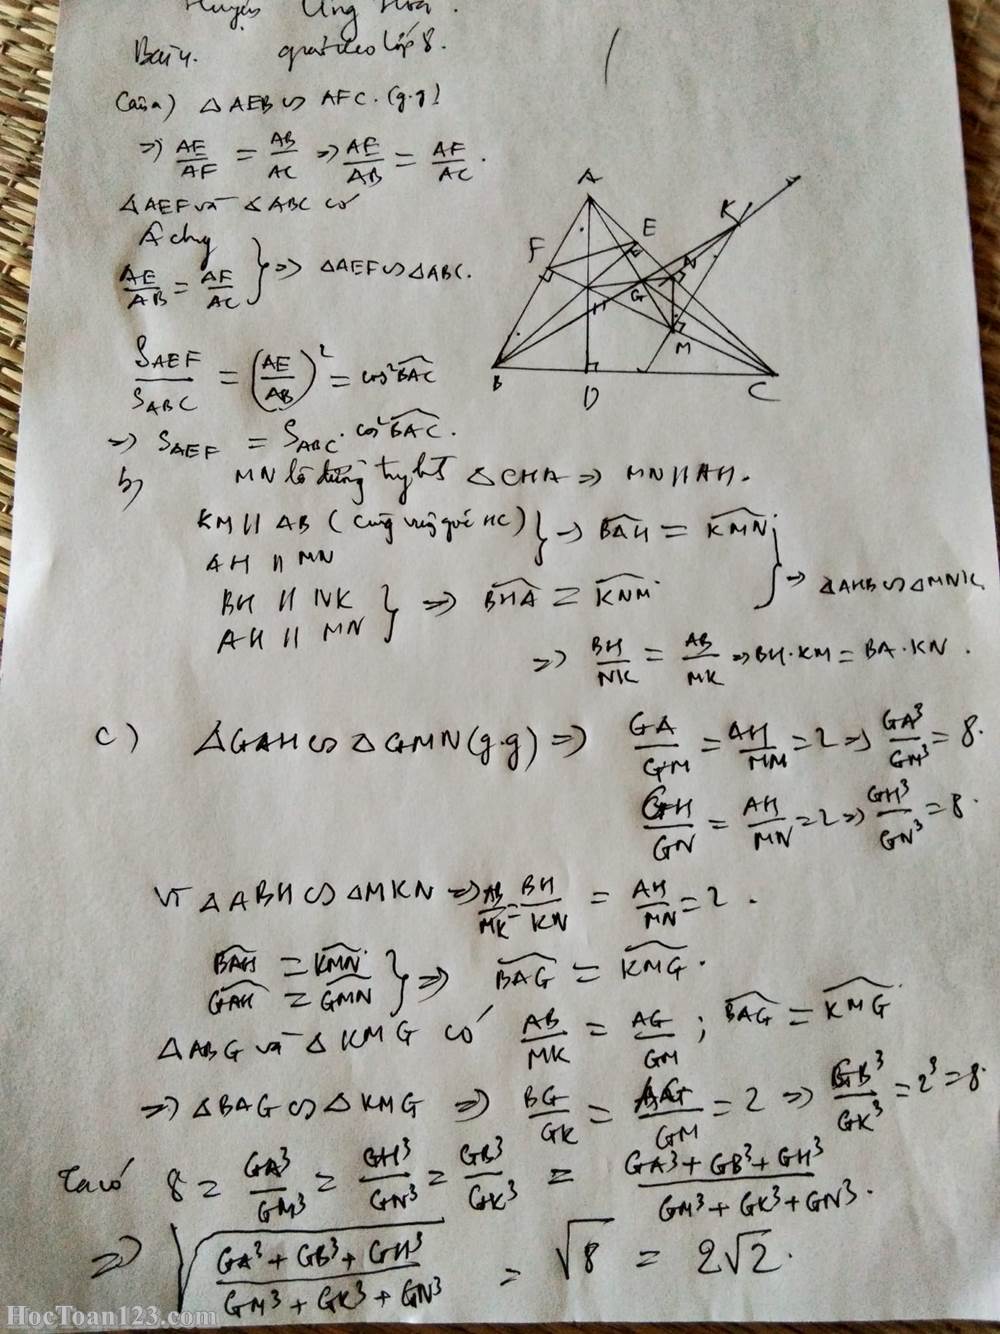 Huyện Ứng Hòa.
Bài 4. lớp 8.
Câu a) △AEB ∽ AFC. (g.g)
=> AE/AF = AB/AC => AE/AB = AF/AC.
△AEF và △ABC có
Â chung
AE/AB = AF/AC } => △AEF ∽ △ABC.
S_AEF/S_ABC = (AE/AB)² = cos²BAC
=> S_AEF = S_ABC . cos²BAC.
b) MN là đường △CHA => MN // AH.
KM // AB (Cùng HC)
AH // MN } => BAH = KMN
BH // NK
AH // MN } => BHA = KNM } => △AHB ∽ △MNK
=> BH/NK = AB/MK => BH.KM = BA.KN.
c) △GAH ∽ △GMN (g.g) => GA/GM = AH/MN = 2 => GA³/GM³ = 8.
GH/GN = AH/MN = 2 => GH³/GN³ = 8
Vì △ABH ∽ △MKN => AB/MK = BH/KN = AH/MN = 2.
BAH = KMN
GAH = GMN } => BAG = KMG.
△ABG và △KMG có AB/MK = AG/GM ; BAG = KMG
=> △BAG ∽ △KMG => BG/GK = AG/GM = 2 => GB³/GK³ = 2³ = 8.
Ta có 8 = GA³/GM³ = GH³/GN³ = GB³/GK³ = (GA³ + GB³ + GH³)/(GM³ + GK³ + GN³).
=> √((GA³ + GB³ + GH³)/(GM³ + GK³ + GN³)) = √8 = 2√2.
A
K
E
F
N
G
H
M
B
D
C
HocToan123.com